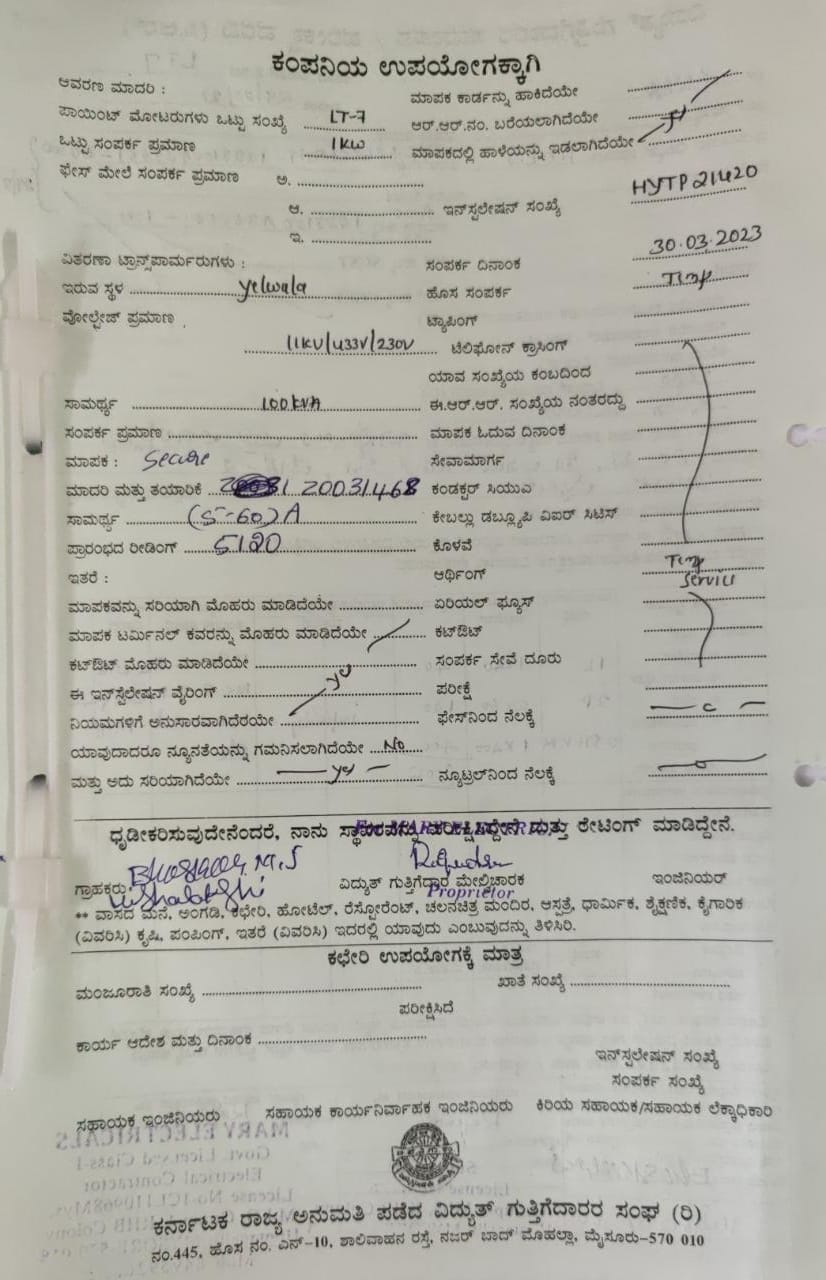 ಕಂಪನಿಯ ಉಪಯೋಗಕ್ಕಾಗಿ
ಆವರಣ ಮಾದರಿ : ಮಾಪಕ ಕಾರ್ಡನ್ನು ಹಾಕಿದೆಯೇ
ಪಾಯಿಂಟ್ ಮೋಟರುಗಳು ಒಟ್ಟು ಸಂಖ್ಯೆ LT-7 ಆರ್.ಆರ್.ನಂ. ಬರೆಯಲಾಗಿದೆಯೇ
ಒಟ್ಟು ಸಂಪರ್ಕ ಪ್ರಮಾಣ 1KW ಮಾಪಕದಲ್ಲಿ ಹಾಳೆಯನ್ನು ಇಡಲಾಗಿದೆಯೇ
ಫೇಸ್ ಮೇಲೆ ಸಂಪರ್ಕ ಪ್ರಮಾಣ ಅ.
ಆ. ಇನ್‌ಸ್ಪಲೇಷನ್ ಸಂಖ್ಯೆ HYTP21420
ಇ.
ವಿತರಣಾ ಟ್ರಾನ್ಸ್‌ಪಾರ್ಮರುಗಳು : ಸಂಪರ್ಕ ದಿನಾಂಕ 30.03.2023
ಇರುವ ಸ್ಥಳ Yelwala ಹೊಸ ಸಂಪರ್ಕ Temp
ವೋಲ್ಟೇಜ್ ಪ್ರಮಾಣ ಟ್ಯಾಪಿಂಗ್
11KV/433V/230V ಟೆಲಿಫೋನ್ ಕ್ರಾಸಿಂಗ್
ಯಾವ ಸಂಖ್ಯೆಯ ಕಂಬದಿಂದ
ಸಾಮರ್ಥ್ಯ 100KVA ಈ.ಆರ್.ಆರ್. ಸಂಖ್ಯೆಯ ನಂತರದ್ದು
ಸಂಪರ್ಕ ಪ್ರಮಾಣ ಮಾಪಕ ಓದುವ ದಿನಾಂಕ
ಮಾಪಕ : Secure ಸೇವಾಮಾರ್ಗ
ಮಾದರಿ ಮತ್ತು ತಯಾರಿಕೆ 20031468 ಕಂಡಕ್ಟರ್ ಸಿಯುಎ
ಸಾಮರ್ಥ್ಯ (5-60)A ಕೇಬಲ್ಲು ಡಬ್ಲ್ಯೂಪಿ ವಿಐಆರ್ ಸಿಟಿಸ್
ಪ್ರಾರಂಭದ ರೀಡಿಂಗ್ 5120 ಕೊಳವೆ
ಇತರೆ : ಆರ್ಥಿಂಗ್ Temp Service
ಮಾಪಕವನ್ನು ಸರಿಯಾಗಿ ಮೊಹರು ಮಾಡಿದೆಯೇ ಏರಿಯಲ್ ಫ್ಯೂಸ್
ಮಾಪಕ ಟರ್ಮಿನಲ್ ಕವರನ್ನು ಮೊಹರು ಮಾಡಿದೆಯೇ ಕಟ್‌ಔಟ್
ಕಟ್‌ಔಟ್ ಮೊಹರು ಮಾಡಿದೆಯೇ ಸಂಪರ್ಕ ಸೇವೆ ದೂರು
ಈ ಇನ್‌ಸ್ಟಲೇಷನ್ ವೈರಿಂಗ್ ಪರೀಕ್ಷೆ
ನಿಯಮಗಳಿಗೆ ಅನುಸಾರವಾಗಿದೆರಯೇ ಫೇಸ್‌ನಿಂದ ನೆಲಕ್ಕೆ
ಯಾವುದಾದರೂ ನ್ಯೂನತೆಯನ್ನು ಗಮನಿಸಲಾಗಿದೆಯೇ No
ಮತ್ತು ಅದು ಸರಿಯಾಗಿದೆಯೇ ನ್ಯೂಟ್ರಲ್‌ನಿಂದ ನೆಲಕ್ಕೆ
ಧೃಡೀಕರಿಸುವುದೇನೆಂದರೆ, ನಾನು ಸ್ಥಾವರವನ್ನು ಪರೀಕ್ಷಿಸಿದ್ದೇನೆ ಮತ್ತು ರೇಟಿಂಗ್ ಮಾಡಿದ್ದೇನೆ.
ಗ್ರಾಹಕರು ವಿದ್ಯುತ್ ಗುತ್ತಿಗೆದಾರ ಮೇಲ್ವಿಚಾರಕ ಇಂಜಿನಿಯರ್
Proprietor
** ವಾಸದ ಮನೆ, ಅಂಗಡಿ, ಕಛೇರಿ, ಹೋಟೆಲ್, ರೆಸ್ಟೋರೆಂಟ್, ಚಲನಚಿತ್ರ ಮಂದಿರ, ಆಸ್ಪತ್ರೆ, ಧಾರ್ಮಿಕ, ಶೈಕ್ಷಣಿಕ, ಕೈಗಾರಿಕ
(ವಿವರಿಸಿ) ಕೃಷಿ, ಪಂಪಿಂಗ್, ಇತರೆ (ವಿವರಿಸಿ) ಇದರಲ್ಲಿ ಯಾವುದು ಎಂಬುವುದನ್ನು ತಿಳಿಸಿರಿ.
ಕಛೇರಿ ಉಪಯೋಗಕ್ಕೆ ಮಾತ್ರ
ಮಂಜೂರಾತಿ ಸಂಖ್ಯೆ ಖಾತೆ ಸಂಖ್ಯೆ
ಪರೀಕ್ಷಿಸಿದೆ
ಕಾರ್ಯ ಆದೇಶ ಮತ್ತು ದಿನಾಂಕ
ಇನ್‌ಸ್ಪಲೇಷನ್ ಸಂಖ್ಯೆ
ಸಂಪರ್ಕ ಸಂಖ್ಯೆ
ಸಹಾಯಕ ಇಂಜಿನಿಯರು ಸಹಾಯಕ ಕಾರ್ಯನಿರ್ವಾಹಕ ಇಂಜಿನಿಯರು ಕಿರಿಯ ಸಹಾಯಕ/ಸಹಾಯಕ ಲೆಕ್ಕಾಧಿಕಾರಿ
ಕರ್ನಾಟಕ ರಾಜ್ಯ ಅನುಮತಿ ಪಡೆದ ವಿದ್ಯುತ್ ಗುತ್ತಿಗೆದಾರರ ಸಂಘ (ರಿ)
ನಂ.445, ಹೊಸ ನಂ. ಎನ್-10, ಶಾಲಿವಾಹನ ರಸ್ತೆ, ನಜರ್ ಬಾದ್ ಮೊಹಲ್ಲಾ, ಮೈಸೂರು-570 010